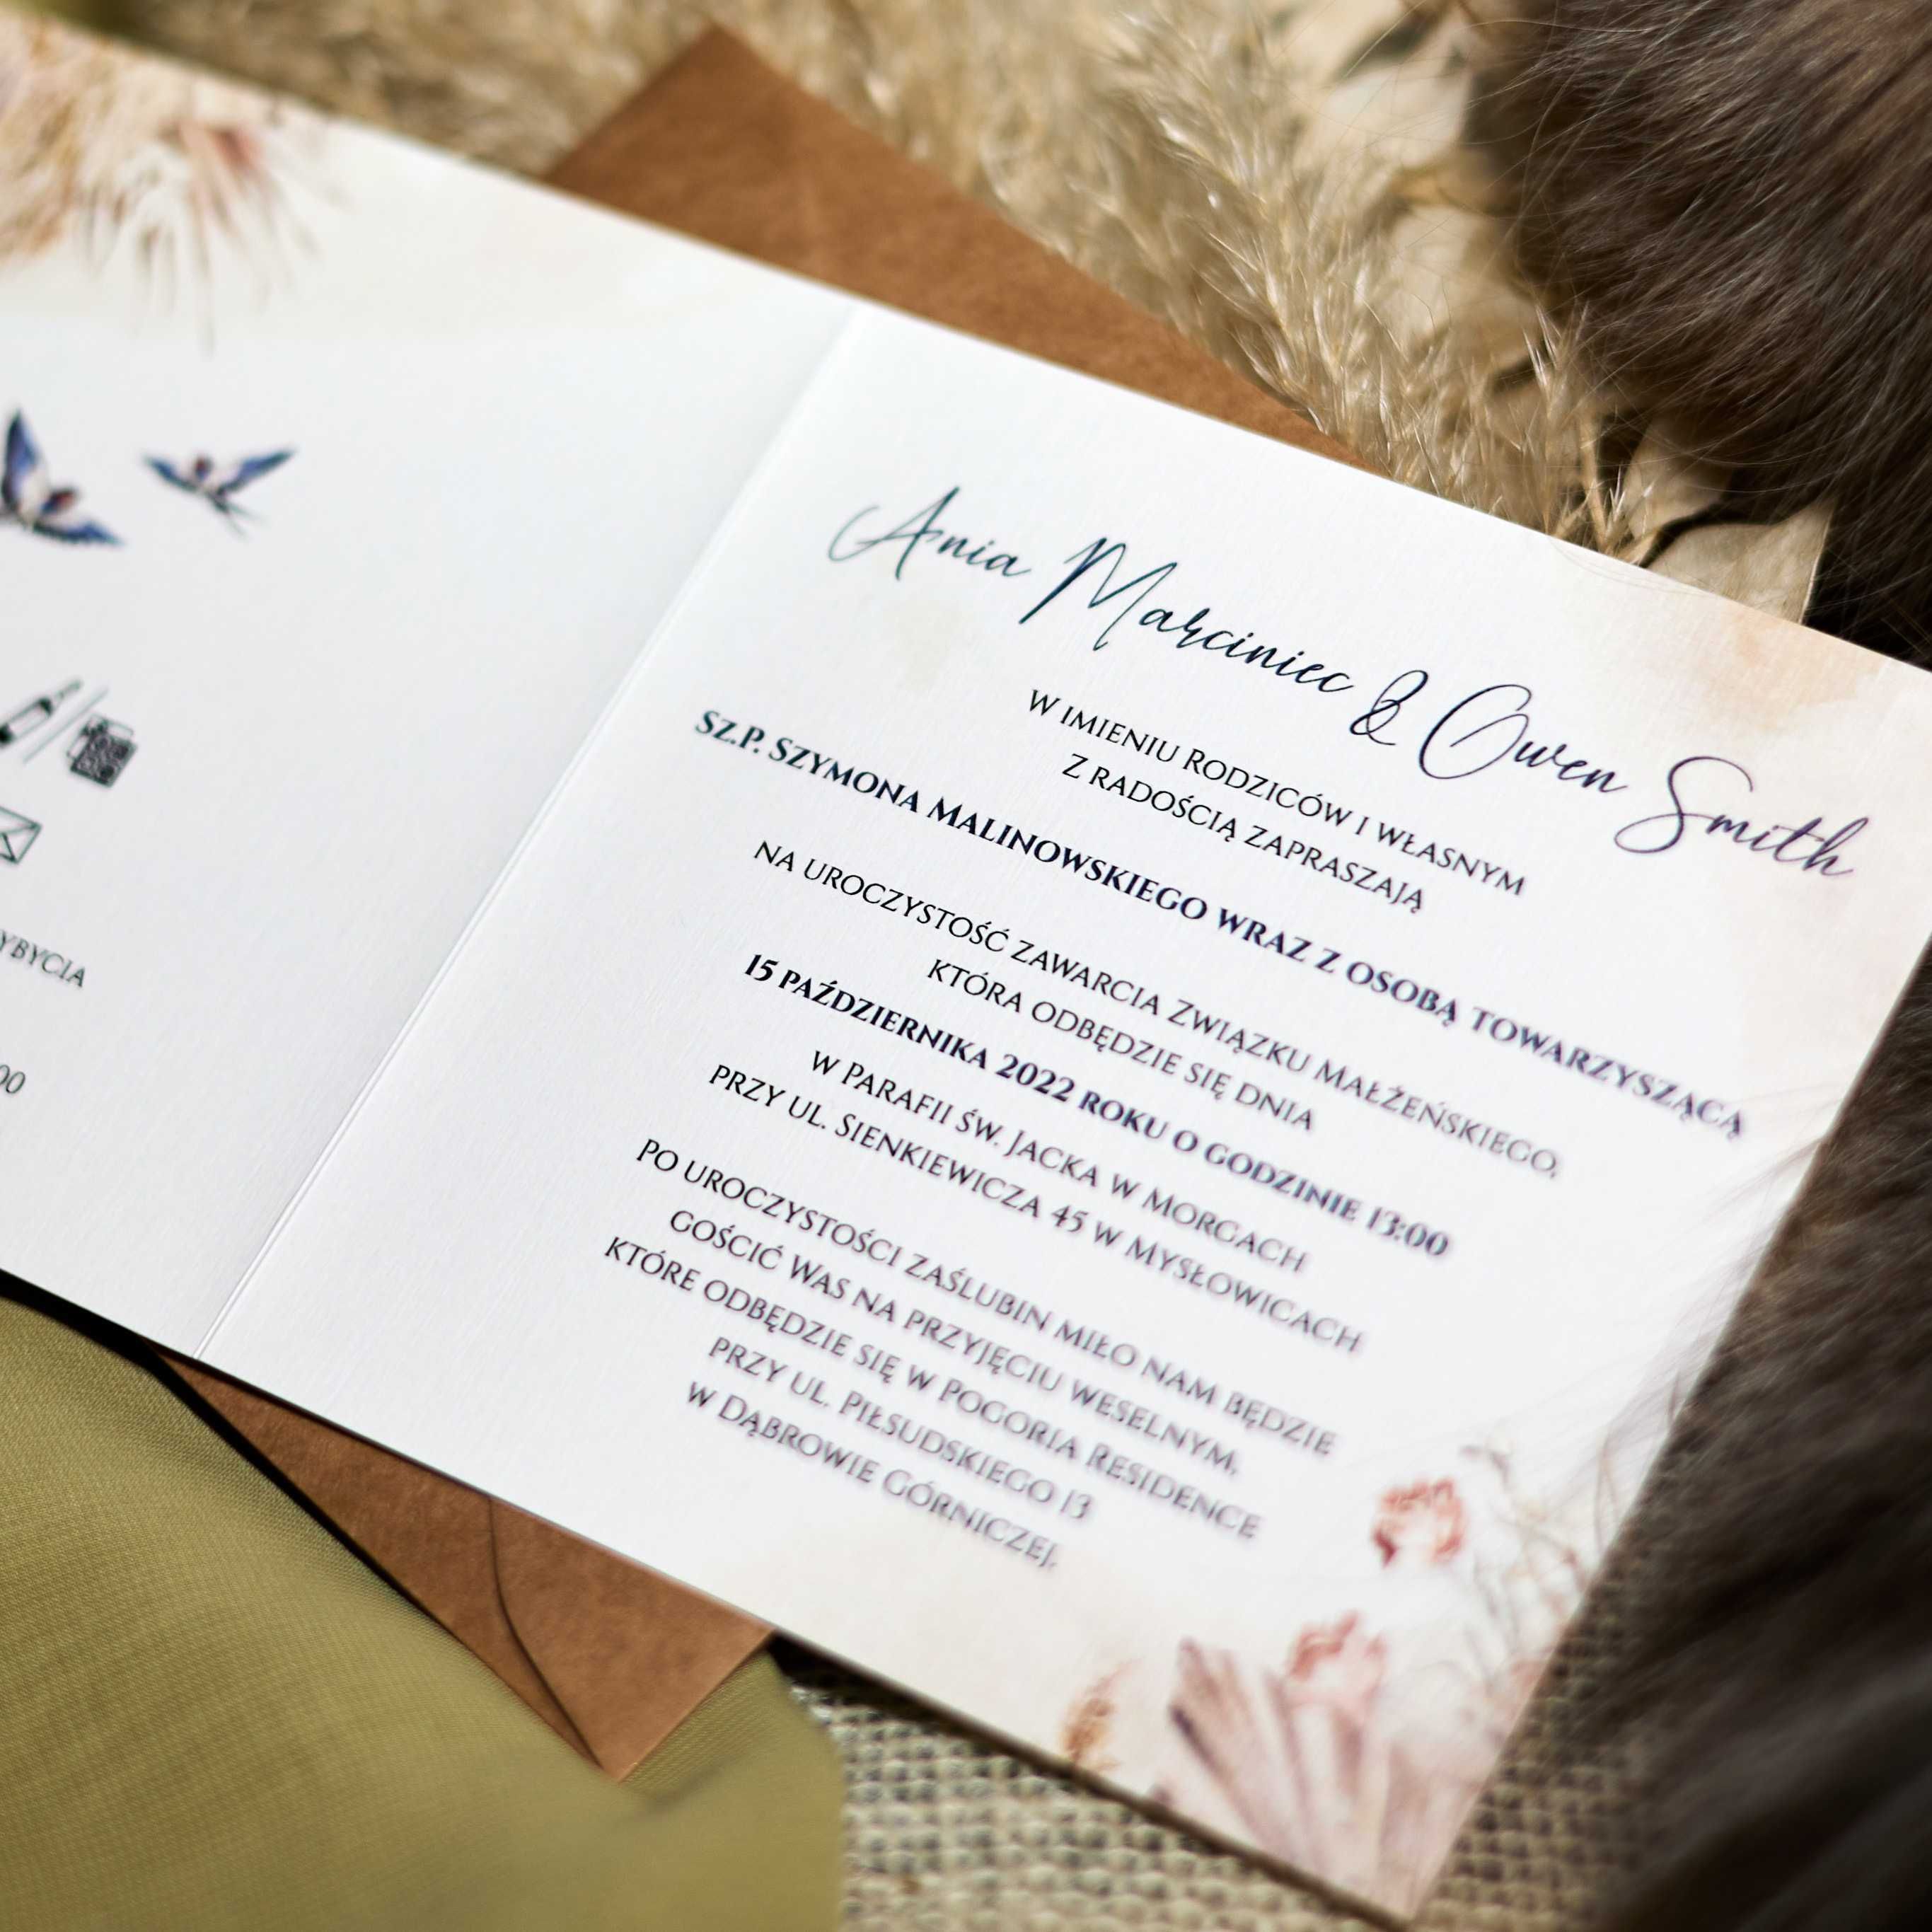 YBYCIA
00
Ania Marciniec & Owen Smith
W IMIENIU RODZICÓW I WŁASNYM
Z RADOŚCIĄ ZAPRASZAJĄ
SZ.P. SZYMONA MALINOWSKIEGO WRAZ Z OSOBĄ TOWARZYSZĄCĄ
NA UROCZYSTOŚĆ ZAWARCIA ZWIĄZKU MAŁŻEŃSKIEGO,
KTÓRA ODBĘDZIE SIĘ DNIA
15 PAŹDZIERNIKA 2022 ROKU O GODZINIE 13:00
W PARAFII ŚW. JACKA W MORGACH
PRZY UL. SIENKIEWICZA 45 W MYSŁOWICACH
PO UROCZYSTOŚCI ZAŚLUBIN MIŁO NAM BĘDZIE
GOŚCIĆ WAS NA PRZYJĘCIU WESELNYM,
KTÓRE ODBĘDZIE SIĘ W POGORIA RESIDENCE
PRZY UL. PIŁSUDSKIEGO 13
W DĄBROWIE GÓRNICZEJ.